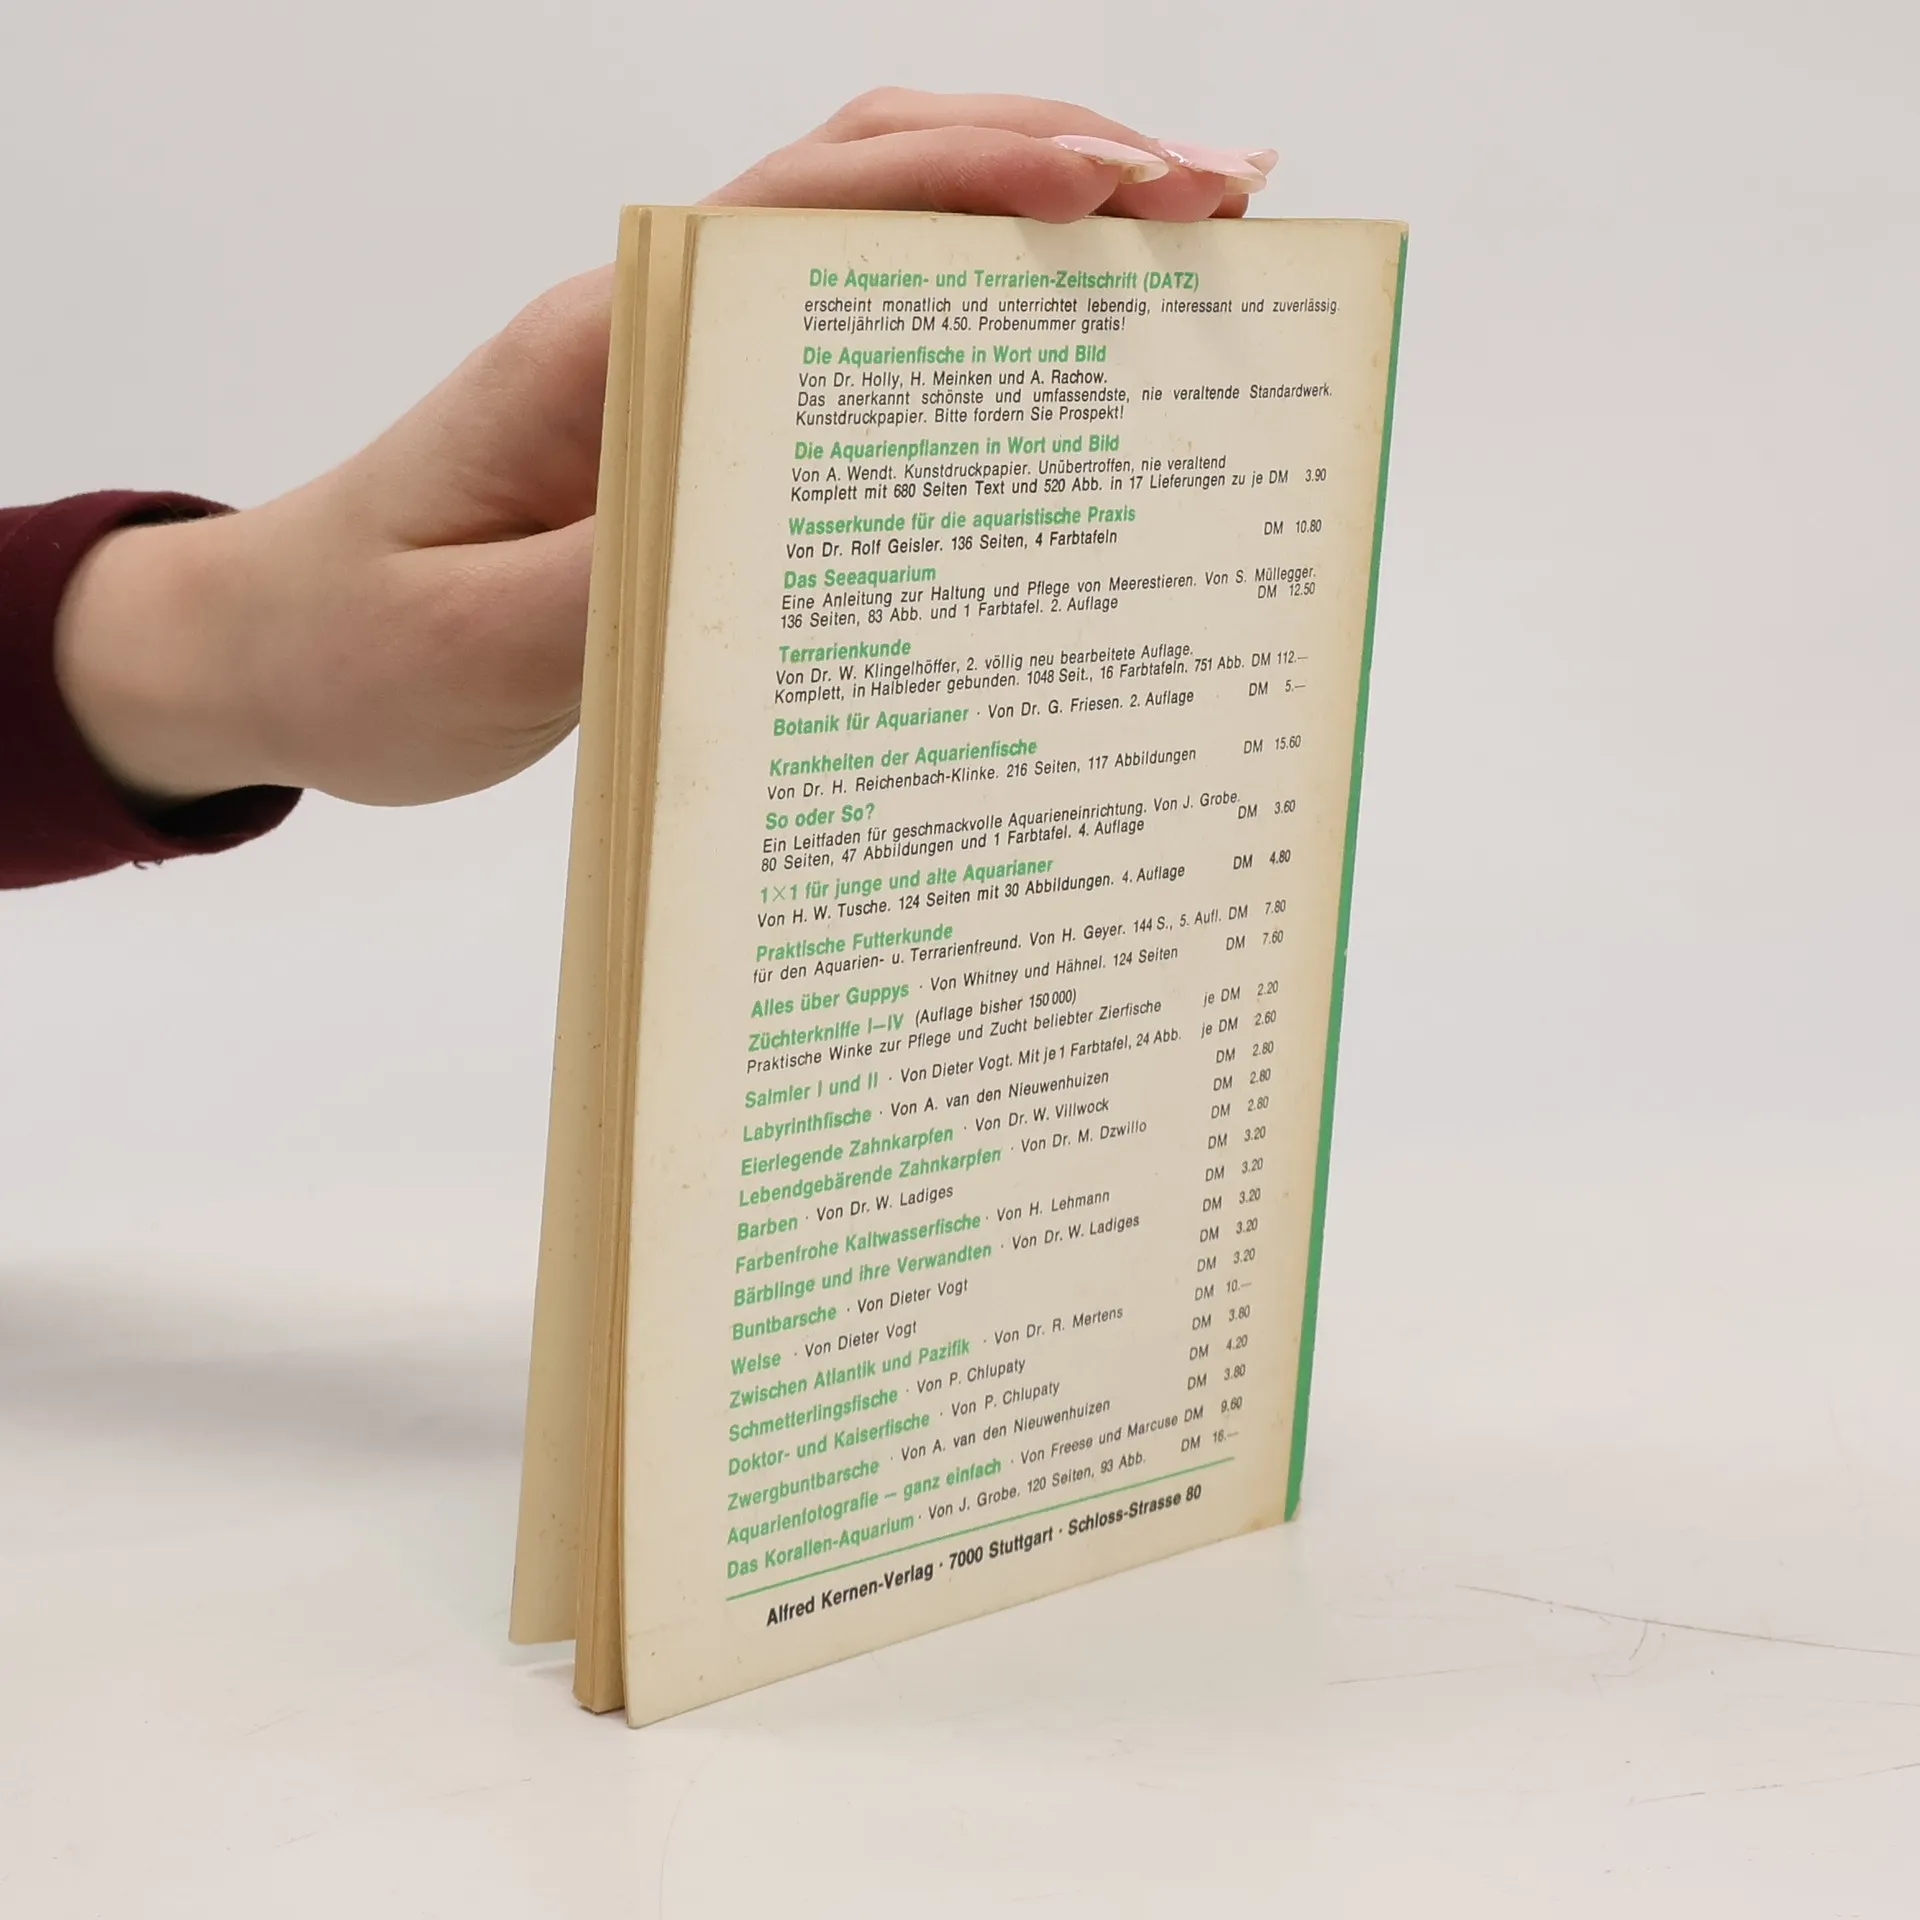 Die Aquarien- und Terrarien-Zeitschrift (DATZ)
erscheint monatlich und unterrichtet lebendig, interessant und zuverlässig.
Vierteljährlich DM 4.50. Probenummer gratis!
Die Aquarienfische in Wort und Bild
Von Dr. Holly, H. Meinken und A. Rachow.
Das anerkannt schönste und umfassendste, nie veraltende Standardwerk.
Kunstdruckpapier. Bitte fordern Sie Prospekt!
Die Aquarienpflanzen in Wort und Bild
Von A. Wendt. Kunstdruckpapier. Unübertroffen, nie veraltend
Komplett mit 680 Seiten Text und 520 Abb. in 17 Lieferungen zu je DM 3.90
Wasserkunde für die aquaristische Praxis
Von Dr. Rolf Geisler. 136 Seiten, 4 Farbtafeln DM 10.80
Das Seeaquarium
Eine Anleitung zur Haltung und Pflege von Meerestieren. Von S. Müllegger.
136 Seiten, 83 Abb. und 1 Farbtafel. 2. Auflage DM 12.50
Terrarienkunde
Von Dr. W. Klingelhöffer, 2. völlig neu bearbeitete Auflage.
Komplett, in Halbleder gebunden. 1048 Seit., 16 Farbtafeln. 751 Abb. DM 112.—
Botanik für Aquarianer · Von Dr. G. Friesen. 2. Auflage DM 5.—
Krankheiten der Aquarienfische
Von Dr. H. Reichenbach-Klinke. 216 Seiten, 117 Abbildungen DM 15.60
So oder So?
Ein Leitfaden für geschmackvolle Aquarieneinrichtung. Von J. Grobe.
80 Seiten, 47 Abbildungen und 1 Farbtafel. 4. Auflage DM 3.60
1×1 für junge und alte Aquarianer
Von H. W. Tusche. 124 Seiten mit 30 Abbildungen. 4. Auflage DM 4.80
Praktische Futterkunde
für den Aquarien- u. Terrarienfreund. Von H. Geyer. 144 S., 5. Aufl. DM 7.80
Alles über Guppys · Von Whitney und Hähnel. 124 Seiten DM 7.60
Züchterkniffe I—IV (Auflage bisher 150 000)
Praktische Winke zur Pflege und Zucht beliebter Zierfische je DM 2.20
Salmler I und II · Von Dieter Vogt. Mit je 1 Farbtafel, 24 Abb. je DM 2.60
Labyrinthfische · Von A. van den Nieuwenhuizen DM 2.80
Eierlegende Zahnkarpfen · Von Dr. W. Villwock DM 2.80
Lebendgebärende Zahnkarpfen · Von Dr. M. Dzwillo DM 2.80
Barben · Von Dr. W. Ladiges DM 3.20
Farbenfrohe Kaltwasserfische · Von H. Lehmann DM 3.20
Bärblinge und ihre Verwandten · Von Dr. W. Ladiges DM 3.20
Buntbarsche · Von Dieter Vogt DM 3.20
Welse · Von Dieter Vogt DM 3.20
Zwischen Atlantik und Pazifik · Von Dr. R. Mertens DM 10.—
Schmetterlingsfische · Von P. Chlupaty DM 3.80
Doktor- und Kaiserfische · Von P. Chlupaty DM 4.20
Zwergbuntbarsche · Von A. van den Nieuwenhuizen DM 3.80
Aquarienfotografie — ganz einfach · Von Freese und Marcuse DM 9.60
Das Korallen-Aquarium · Von J. Grobe. 120 Seiten, 93 Abb. DM 16.—
Alfred Kernen-Verlag · 7000 Stuttgart · Schloss-Strasse 80